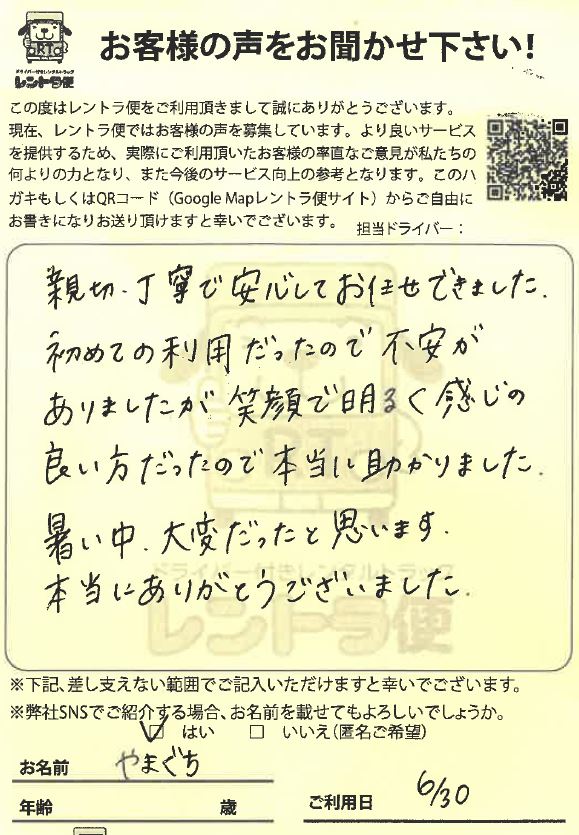 RT
ドライバー付きレンタルトラック
レントラ便
お客様の声をお聞かせ下さい!
この度はレントラ便をご利用頂きまして誠にありがとうございます。
現在、レントラ便ではお客様の声を募集しています。より良いサービス
を提供するため、実際にご利用頂いたお客様の率直なご意見が私たちの
何よりの力となり、また今後のサービス向上の参考となります。このハ
ガキもしくはQRコード（Google Mapレントラ便サイト）からご自由に
お書きになりお送り頂けますと幸いでございます。
担当ドライバー：
親切、丁寧で安心してお任せできました.
初めての利用だったので不安が
ありましたが笑顔で明るく感じの
良い方だったので本当に助かりました.
暑い中、大変だったと思います.
本当にありがとうございました.
RT
ドライバー付きレンタルトラック
レントラ便
※下記、差し支えない範囲でご記入いただけますと幸いでございます。
※弊社SNSでご紹介する場合、お名前を載せてもよろしいでしょうか。
☑ はい □ いいえ(匿名ご希望)
お名前 やまぐち
年齢 歳 ご利用日 6/30